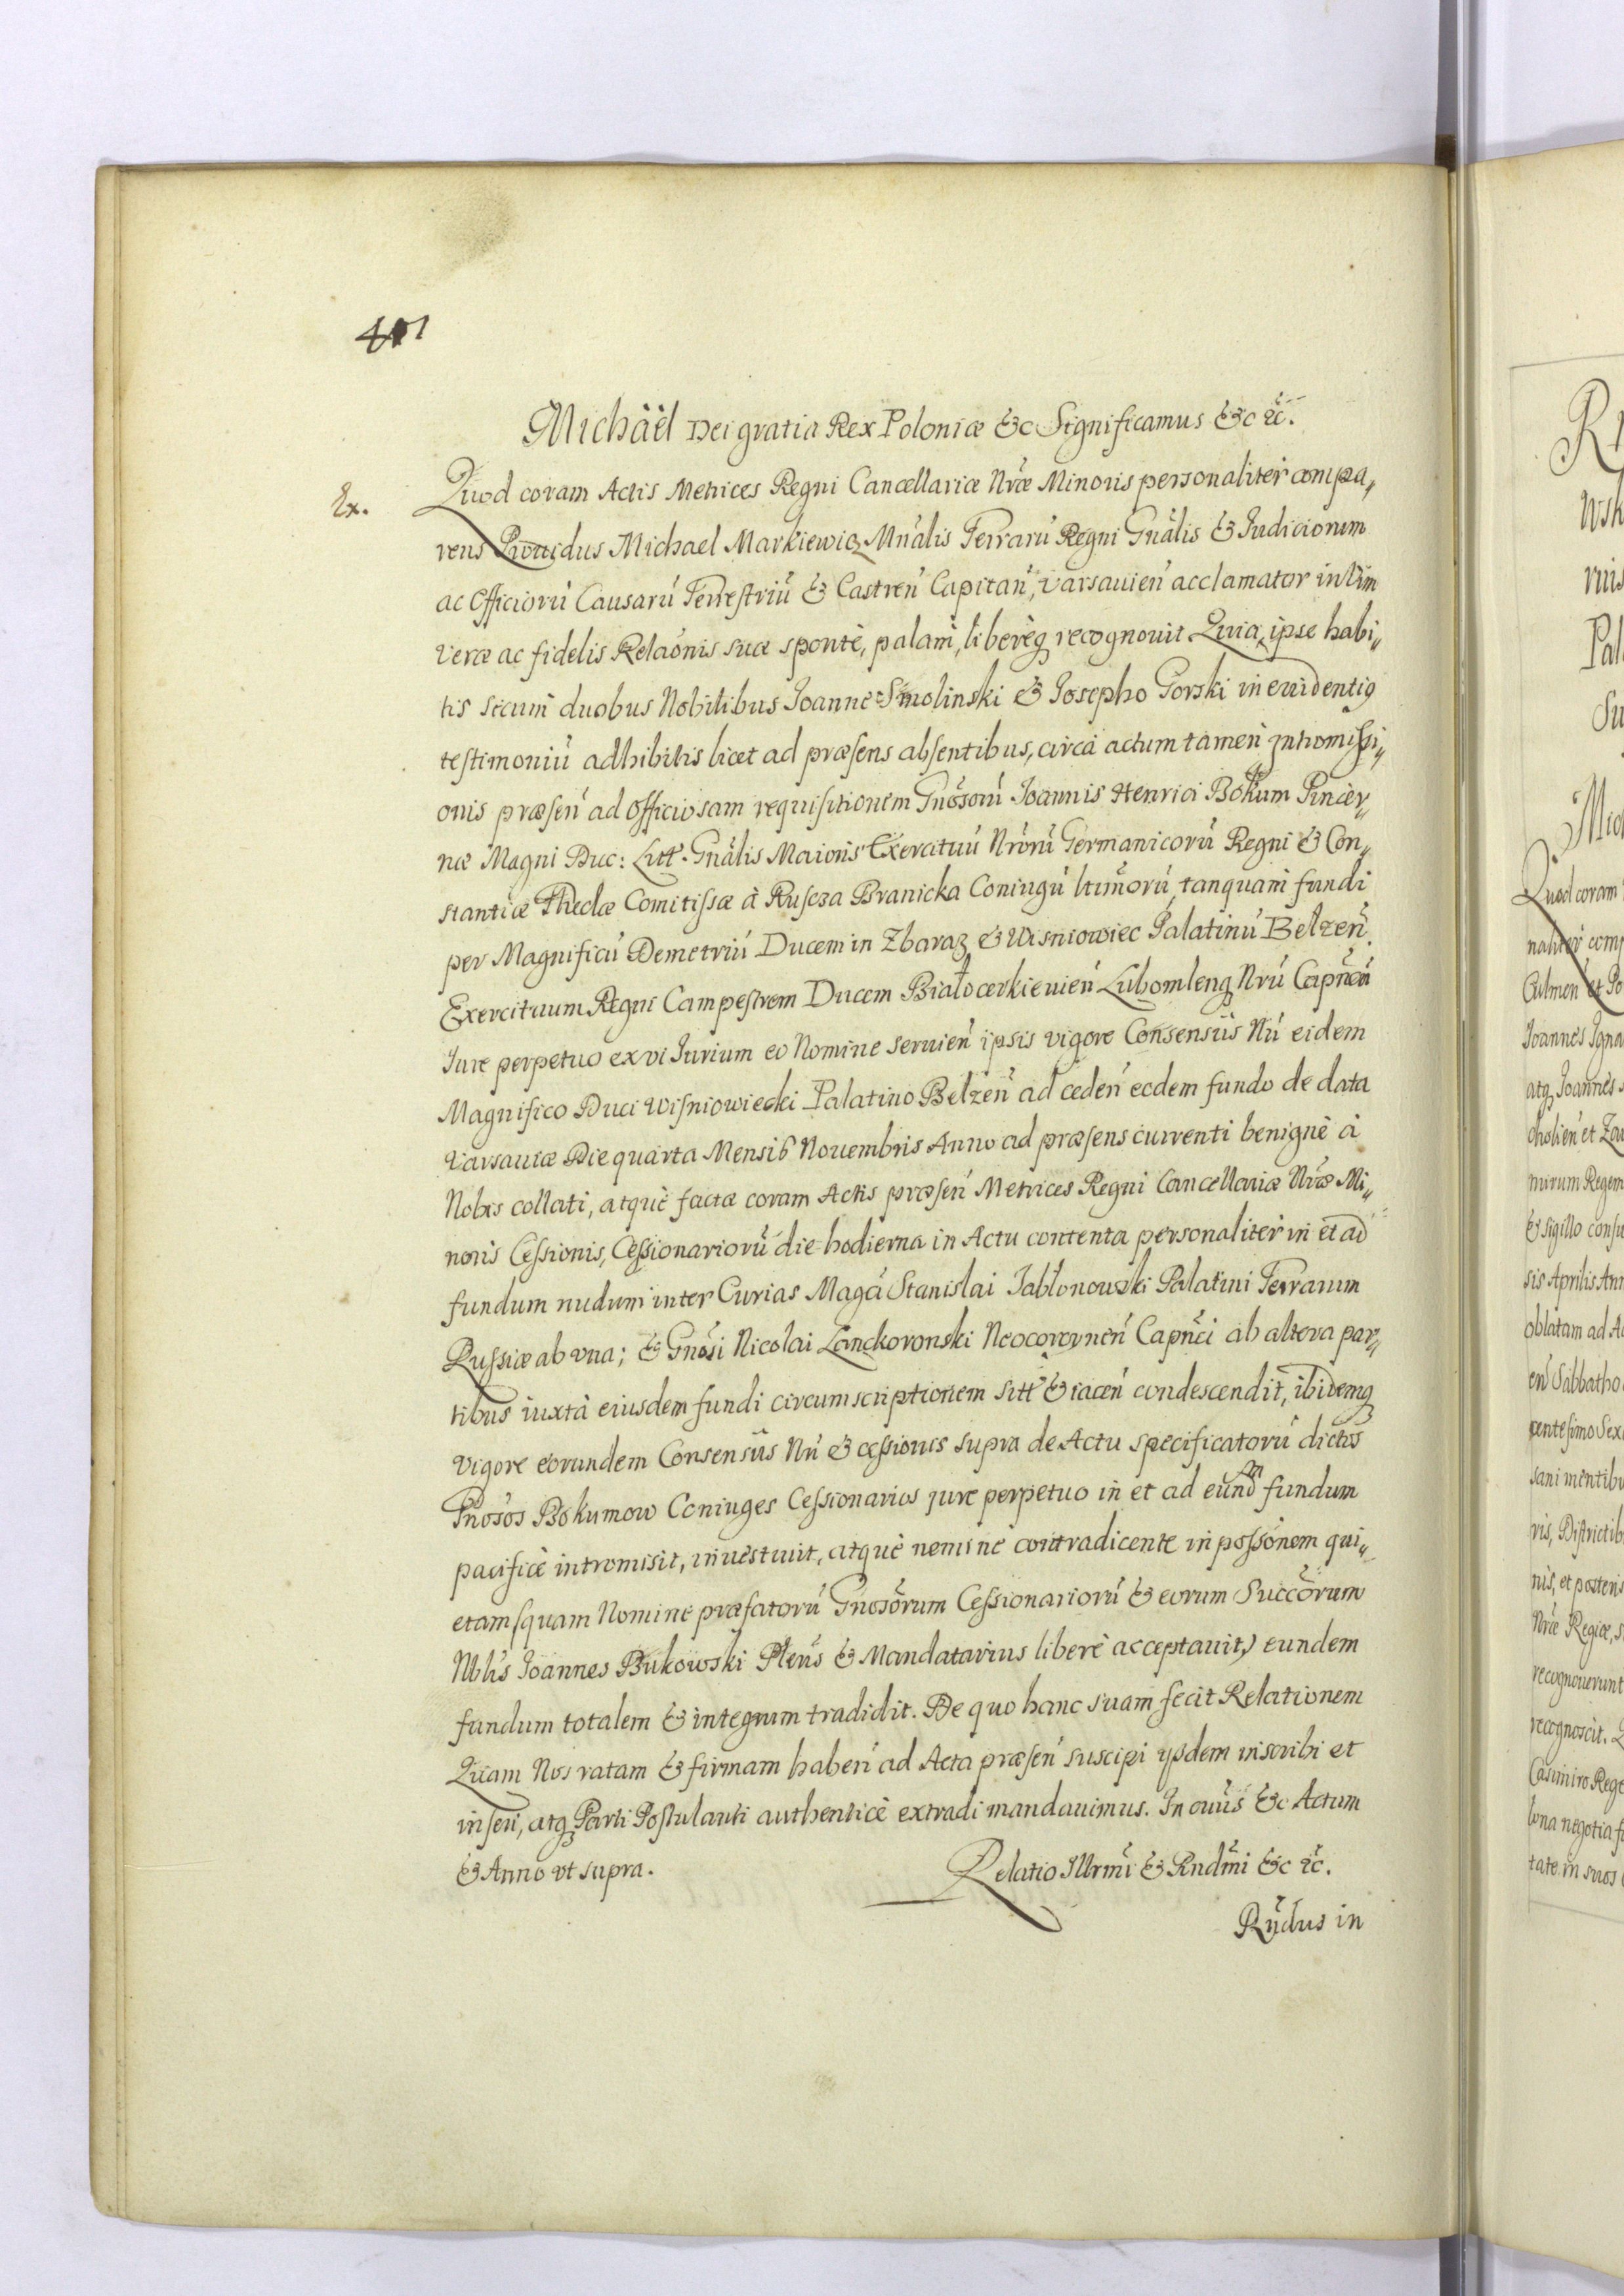 401
Michäël Dei gratia Rex Poloniæ &c Significamus &c &c.
Ex.
Quod coram Actis Metrices Regni Cancellariæ Nræ Minoris personaliter compa„
rens Prouidus Michael Markiewicz Mnālis Terrarū Regni Gnālis & Iudiciorum
ac Officiorū Causarū Terrestriū & Castreñ Capitañ, Varsauieñ acclamator in vim
veræ ac fidelis Relaōnis suæ spontè, palam, liberèq recognouit Quia ipse habi„
tis secum duobus Nobilibus Joanne Smolinski & Josepho Gorski in euidentig
testimoniū adhibitis licet ad præsens absentibus, circa actum tamen intromissi„
onis præseñ ad officiosam requisitionem Gnōsorū Joannis Henrici Bokum Pincer„
næ Magni Duc: Litt. Gnālis Maioris Exercituū Nrōrū Germanicorū Regni & Con„
stantiæ Theclæ Comitissæ à Ruscza Branicka Coniugū ltimorū, tanquam fundi
per Magnificū Demetriū Ducem in Zbaraz & Wisniowiec Palatinū Belzeñ
Exercituum Regni Campestrem Ducem Białocerkieuieñ Lubomleng Nrū Capñeū
Iure perpetuo ex vi Iurium eo Nomine seruieñ ipsis vigore Consensûs Nri eidem
Magnifico Duci Wisniowiecki Palatino Belzeñ ad cedeñ eodem fundo de data
Varsauiæ Die quarta Mensis Nouembris Anno ad præsens currenti benignè à
Nobis collati, atquè factæ coram Actis præseñ Metrices Regni Cancellariæ Nræ Mi„
noris Cessionis, Cessionariorū die hodierna in Actu contenta personaliter in et ad
fundum nudum inter Curias Magci Stanislai Jabłonowski Palatini Terrarum
Russiæ ab vna; & Gnōsi Nicolai Lanckoronski Neocorcyneñ Capñei ab altera par„
tibus iuxta eiusdem fundi circumscriptionem sitt & iaceñ condescendit, ibidemq
vigore eorundem Consensûs Nri & cessionis supra de Actu specificatorū dictos
Gnosos Bokumow Coniuges Cessionarios jure perpetuo in et ad eund̄m fundum
pacificè intromisit, inuestiuit, atquè nemine contradicente in possōnem qui„
etamsquam Nomine præfatorū Gnosōrum Cessionariorū & eorum Succōrum
Nblis Joannes Bukowski Pleñs & Mandatarius liberè acceptauit) eundem
fundum totalem & integrum tradidit. De quo hanc suam fecit Relationem
Quam Nos ratam & firmam habeñ ad Acta præseñ suscipi ijsdem inscribi et
inseri, atq Parti Postulanti authenticè extradi mandauimus. In cuius &c Actum
& Anno vt supra.
Relatio Illrmi & Rndmi &c &c.
Rndus in